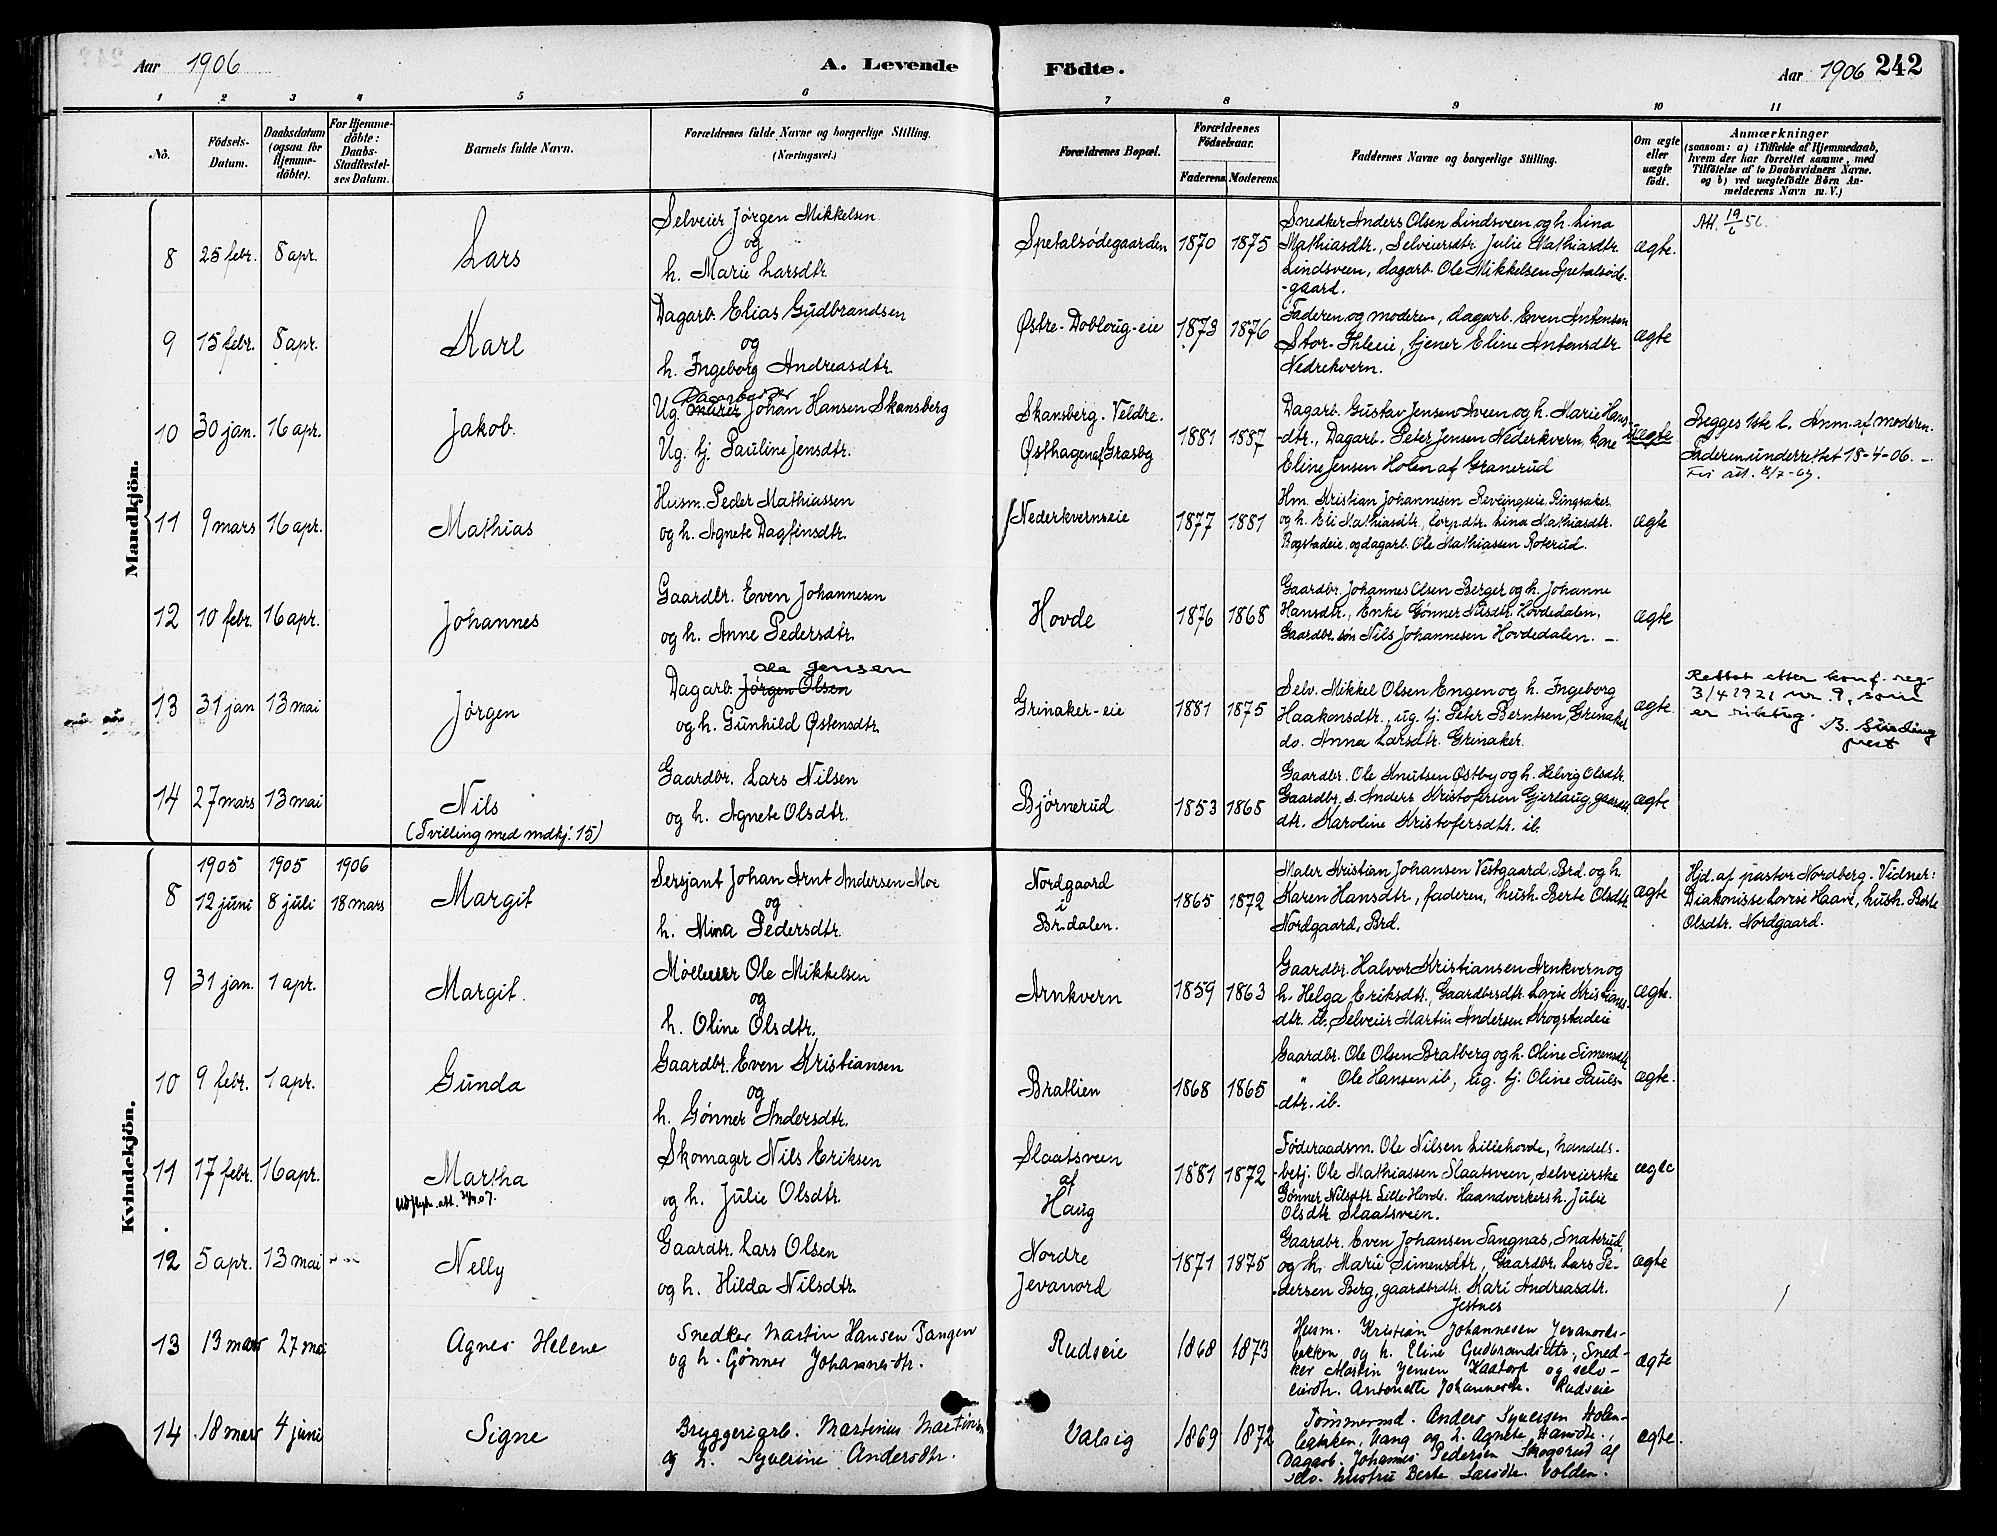 Aar 1906
A. Levende
Födte.
Aar 1906 242
1 2 3 4 5 6 7 8 9 10 11
Nô.
Födsels-
Datum.
Daabsdatum
(ogsaa for
Hjemme-
döbte).
For Hjemme-
döbte:
Daabs-
Stadfæstel-
ses Datum.
Barnets fulde Navn.
Forældrenes fulde Navne og borgerlige Stilling.
(Næringsvei.)
Forældrenes Bopæl.
Forældrenes
Födselsaar.
Faderens. Moderens.
Faddernes Navne og borgerlige Stilling.
Om ægte
eller
uægte
födt.
Anmærkninger
(saasom: a) i Tilfælde af Hjemmedaab,
hvem der har forrettet samme, med
Tilföielse af to Daabsvidners Navne.
og b) ved uægtefödte Börn An-
melderens Navn m. V.)
Mandkjön.
8 25 febr. 8 apr. Lars
Selveier Jørgen Mikkelsen
og
h. Marie Larsdtr.
Spetalsødegaarden 1870 1875
Snedker Anders Olsen Lindsveen og h. Lina
Mathiasdtr., Selveiersdtr. Julie Mathiasdtr.
Lindsveen, dagarb. Ole Mikkelsen Spetalsøde-
-gaard.
ægte.
Att. 19/6 56.
9 15 febr. 8 apr. Karl
Dagarb. Elias Gudbrandsen
og
h. Ingeborg Andreasdtr.
Østre-Doblorug-eie 1873 1876
Faderen og moderen, dagarb. Even Antonsen
Stor-Ihleeie, tjener Eline Antonsdtr
Nedrekvern.
ægte
10 30 jan. 16 apr. Jakob.
Dagarbeider
Ug. Johan Hansen Skansberg
Ug. tj. Pauline Jensdtr.
Skansberg. Veldre.
Østhagen af Grasby
1881 1887
Dagarb. Gustav Jensen Sveen og h. Marie Hans-
-dtr., Dagarb. Peter Jensen Nederkvern, kone
Eline Jensen Holen af Granerud
uægte
Begges 1ste l. Anm. af moderen.
Faderen underrettet 18-4-06. -
att. 8/7-67.
11 9 mars 16 apr. Mathias
Husm. Peder Mathiassen
og h. Agnete Dagfinsdtr.
Nederkvernseie 1877 1881
Hm. Kristian Johannesen Revlingseie Ringsaker
og h. Eli Mathiasdtr, korp.dtr. Lina Mathiasdtr.
Bogstadeie, og dagarb. Ole Mathiassen Roterud.
ægte
12 10 febr. 16 apr. Johannes
Gaardbr. Even Johannesen
og h. Anne Pedersdtr.
Hovde 1876 1868
Gaardbr. Johannes Olsen Berger og h. Johanne
Hansdtr., Enke Gønner Nilsdtr. Hovdedalen,
Gaardbr. søn Nils Johannesen Hovdedalen. -
ægte
13 31 jan 13 mai Jørgen
Ole Jensen
Dagarb. Jørgen Olsen
og h. Gunhild Østensdtr.
Grinaker-eie 1881 1875
Selv. Mikkel Olsen Engen og h. Ingeborg
Haakonsdtr., ug. tj. Peter Berntsen, Grinaker
do. Anna Larsdtr. Grinaker.
ægte.
Rettet etter konf. reg.
3/4 1921 nr. 9, som
er riktug.
B. Sinding
prest
14 27 mars 13 mai Nils
(Tvilling med mdkj. 15)
Gaardbr. Lars Nilsen
og h. Agnete Olsdtr.
Bjørnerud 1853 1865
Gaardbr. Ole Knutsen Østby og h. Helvig Olsdtr.
Gaardbr. s. Anders Kristofersen Gjerlaug, gaardbr
dtr. Karoline Kristofersdtr. ib.
ægte
Kvindekjön.
8
1905 1905 1906
12 juni 8 juli 18 mars Margit
Sersjant Johan Arnt Andersen Moe
og
h. Mina Pedersdtr.
Nordgaard
i
Br.dalen.
1865 1872
Maler Kristian Johansen Vestgaard Brd. og h.
Karen Hansdtr, faderen, hush. Berte Olsdtr.
Nordgaard, Brd.
ægte
Hjd. af pastor Nordberg. Vidner:
Diakonisse Lovise Haave, hush. Berte
Olsdtr. Nordgaard.
9 31 jan. 1 apr. Margit.
Møller Ole Mikkelsen
og
h. Oline Olsdtr.
Arnkvern 1859 1863
Gaardbr. Halvor Kristiansen Arnkvern og
h. Helga Eriksdtr., Gaardbrsdtr. Lovise Kristians-
-dtr. ib., Selveier Martin Andersen Krogstadeie
ægte.
10 9 febr. 1 apr. Gunda
Gaardbr. Even Kristiansen
og
h. Gønner Andersdtr.
Bratlien 1868 1865
Gaardbr. Ole Olsen Bratberg og h. Oline Simensdtr
" Ole Hansen ib, ug. tj. Oline Pauls-
-dtr. ib.
ægte.
11 17 febr. 16 apr. Martha
Skomager Nils Eriksen
og h. Julie Olsdtr.
Slaatsveen
af
Haug
1881 1872
Føderaadsm. Ole Nilsen Lillehovde, handels-
-betj. Ole Mathiassen Slaatsveen, selveierske
Gønner Nilsdtr. Lille Hovde. Haandverkersh. Julie
Olsdtr Slaatsveen.
ægte
12 5 apr. 13 mai Nelly
Gaardbr. Lars Olsen
og h. Hilda Nilsdtr.
Nordre
Jevanord
1871 1875
Gaardbr. Even Johansen Tangnas, Snaterud,
og h. Marie Simensdtr., Gaardbr. Lars Pe-
dersen Berg, gaardbrdtr. Kari Andreasdtr.
Jestnes
ægte
13 13 mars 27 mai Agnes Helene
Snedker Martin Hansen Tangen
og h. Gjønner Johannesdtr.
Rudseie 1868 1873
Husm. Kristian Johannesen Jevanords-
bakken og h. Eline Gudbrandsdtr., Sned-
ker Martin Jensen Kaatorp og selv-
eierdtr. Antonette Johannesdtr. Rudseie
ægte
14 18 mars 4 juni Signe
Bryggeriarb. Martinius Martinsen
og h. Syverine Andersdtr.
Valsig 1869 1872
Tømmermd. Anders Syversen Holen-
bakken, Vang og h. Agnete Hansdtr.,
Dagarb. Johannes Pedersen Skogsrud af
selv. hustru Berte Larsdtr. Volden.
ægte.